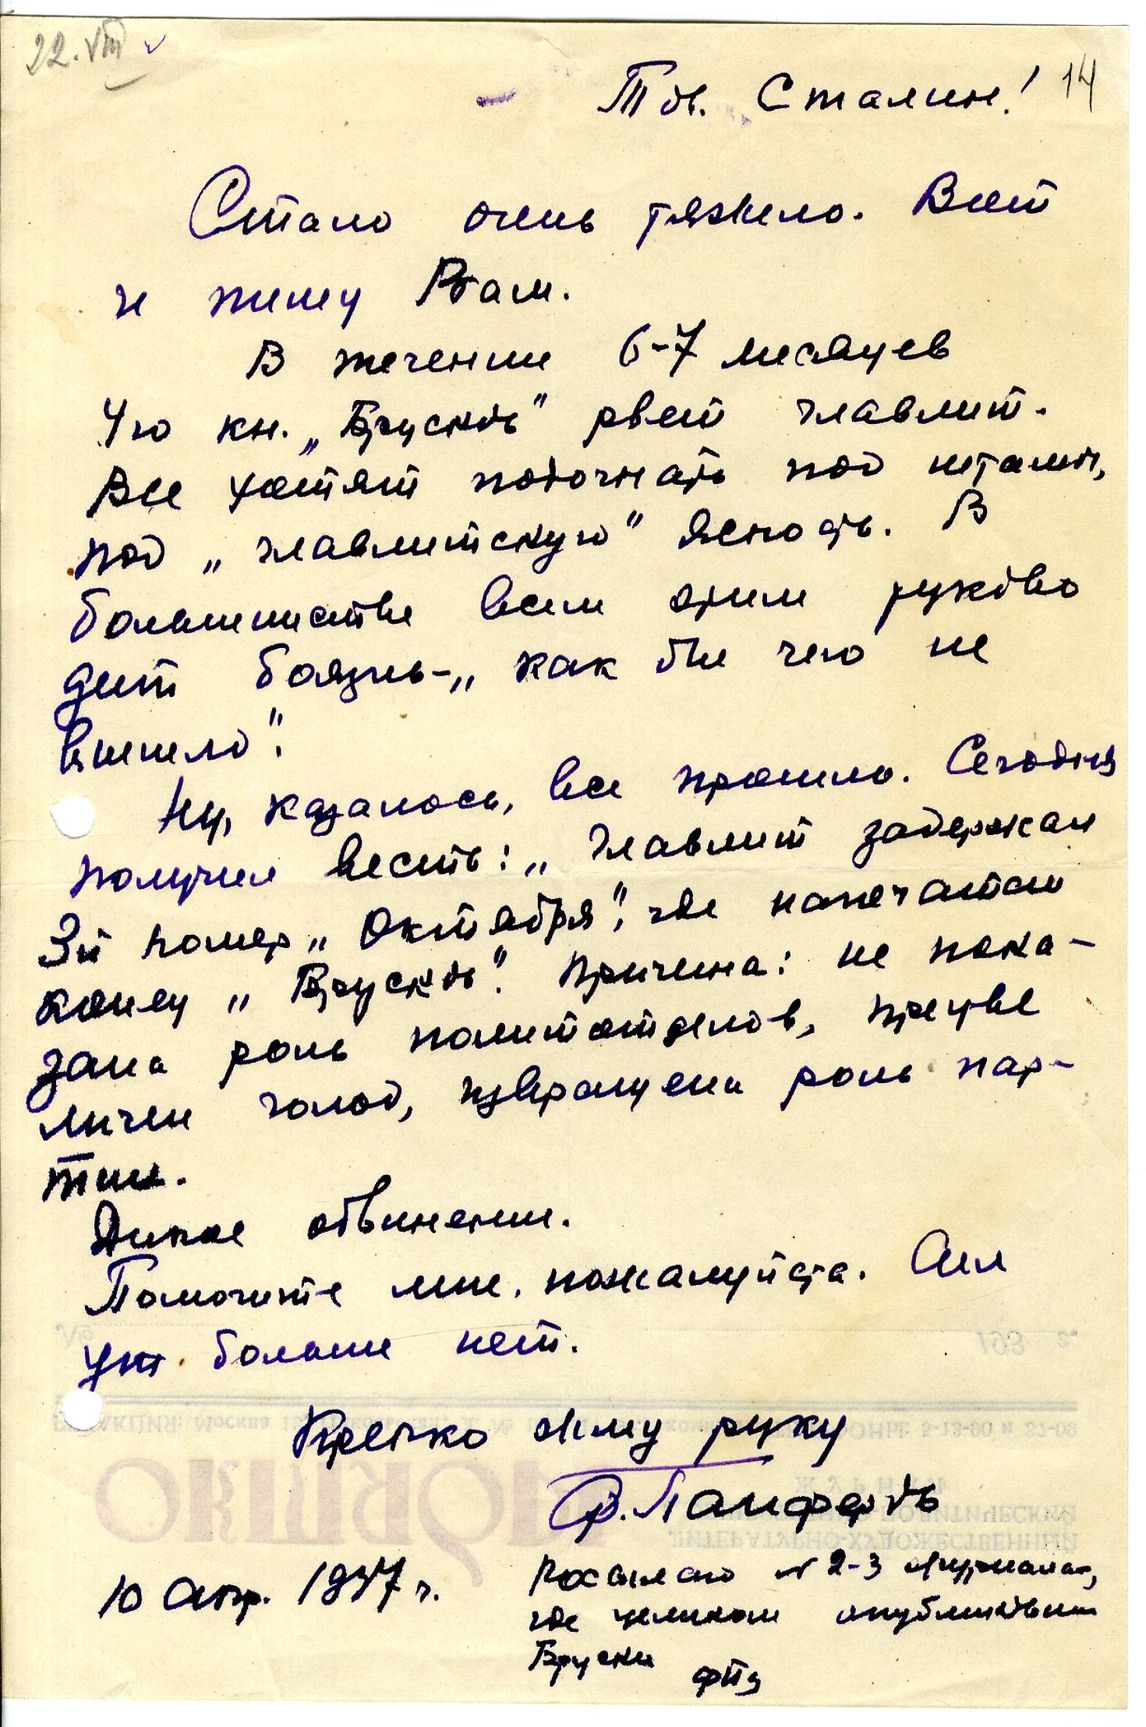 22.VIII
14
Тов. Сталин!
Стало очень тяжело. Вот
и пишу Вам.
В течении 6-7 месяцев
4ю кн. „Брусков" рвет главлит.
Все хотят подогнать под штамп,
под „главлитскую" ясность. В
большинстве всем этим руково
дит боязнь-„как бы чего не
вышло".
Ну, казалось, все прошло. Сегодня
получил весть: „Главлит задержал
3й номер „Октября", где напечатан
конец „Брусков". Причина: не пока-
зана роль политотделов, преуве
личен голод, извращена роль пар-
тии.
Дикое обвинение.
Помогите мне, пожалуйста. Сил
уж больше нет.
Крепко жму руку
Ф. Панферов
10 апр. 1937 г.
Посылаю № 2-3 журнала,
где целиком опубликованы
Бруски
ФПа